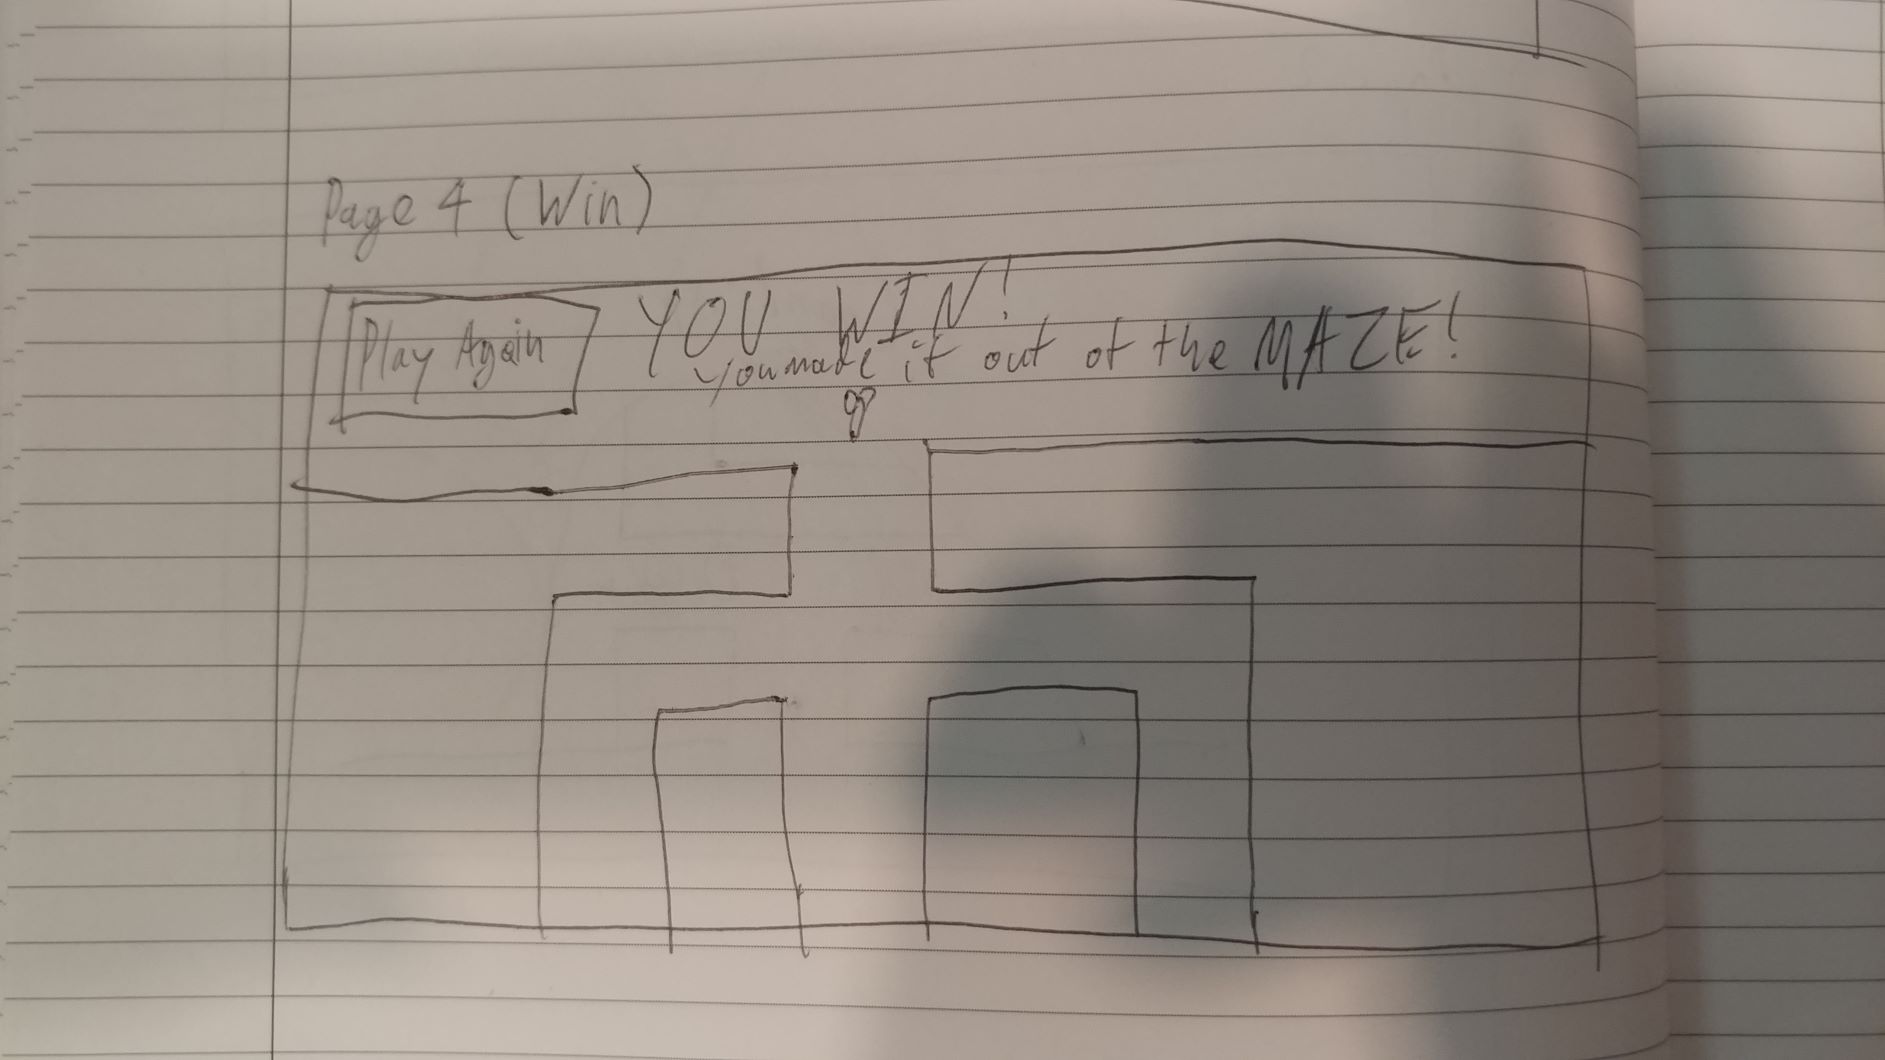 Page 4 (Win)
Play Again
YOU WIN!
You made it out of the MAZE!